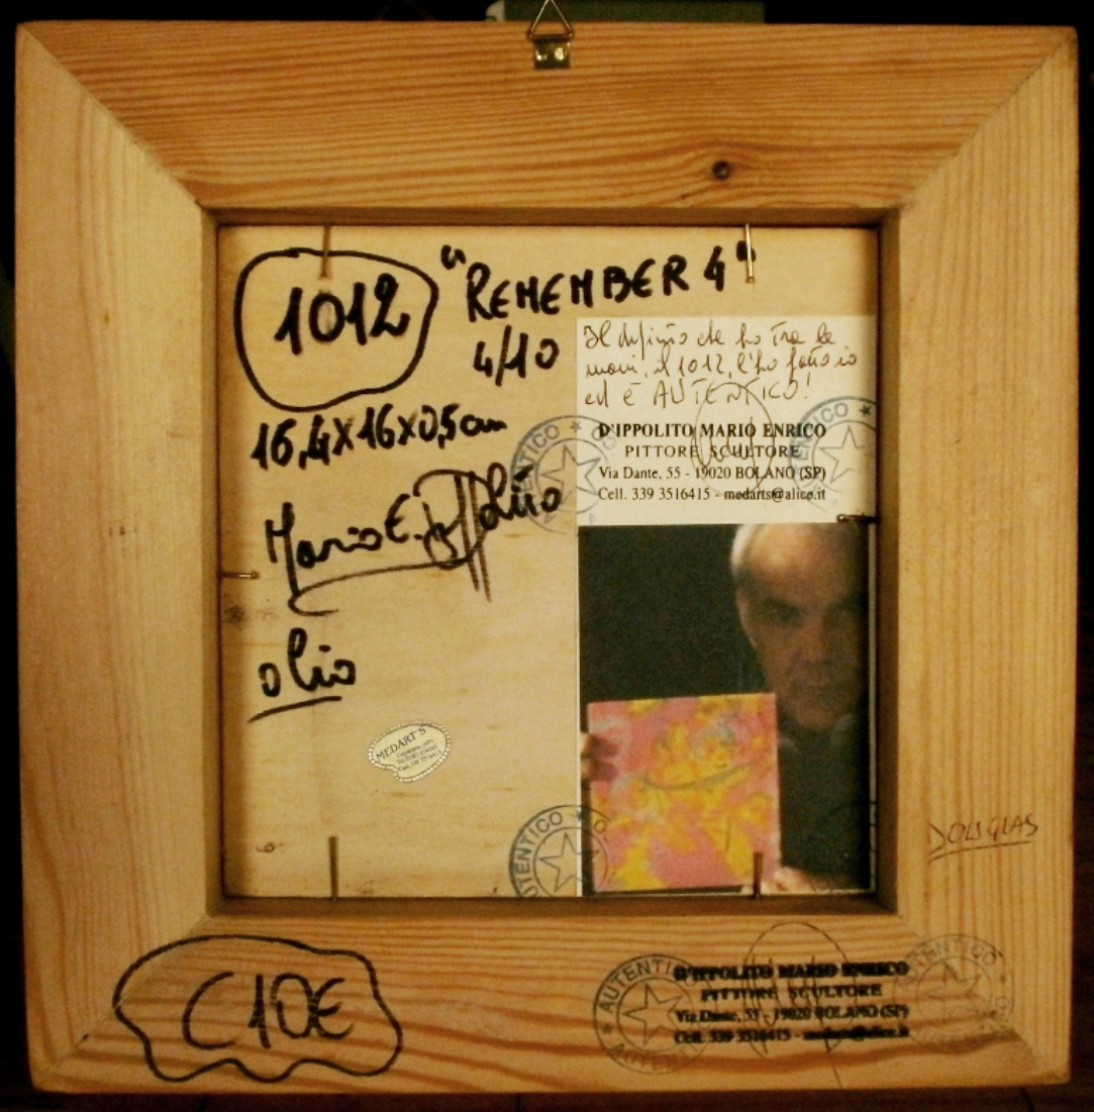 1012
"REMEMBER 4"
4/10
16,4X16X0,5cm
Mario E. D'Ippolito
olio
Il dipinto che ho tra le
mani, il 1012, l'ho fatto io
ed è AUTENTICO!
D'IPPOLITO MARIO ENRICO
PITTORE SCULTORE
Via Dante, 55 - 19020 BOLANO (SP)
Cell. 339 3516415 - medarts@alice.it
AUTENTICO
AUTENTICO
MEDART'S
AUTENTICO
DOUGLAS
C10E
AUTENTICO
AUTENTICO
D'IPPOLITO MARIO ENRICO
PITTORE SCULTORE
Via Dante, 55 - 19020 BOLANO (SP)
Cell. 339 3516415 - medarts@alice.it
AUTENTICO